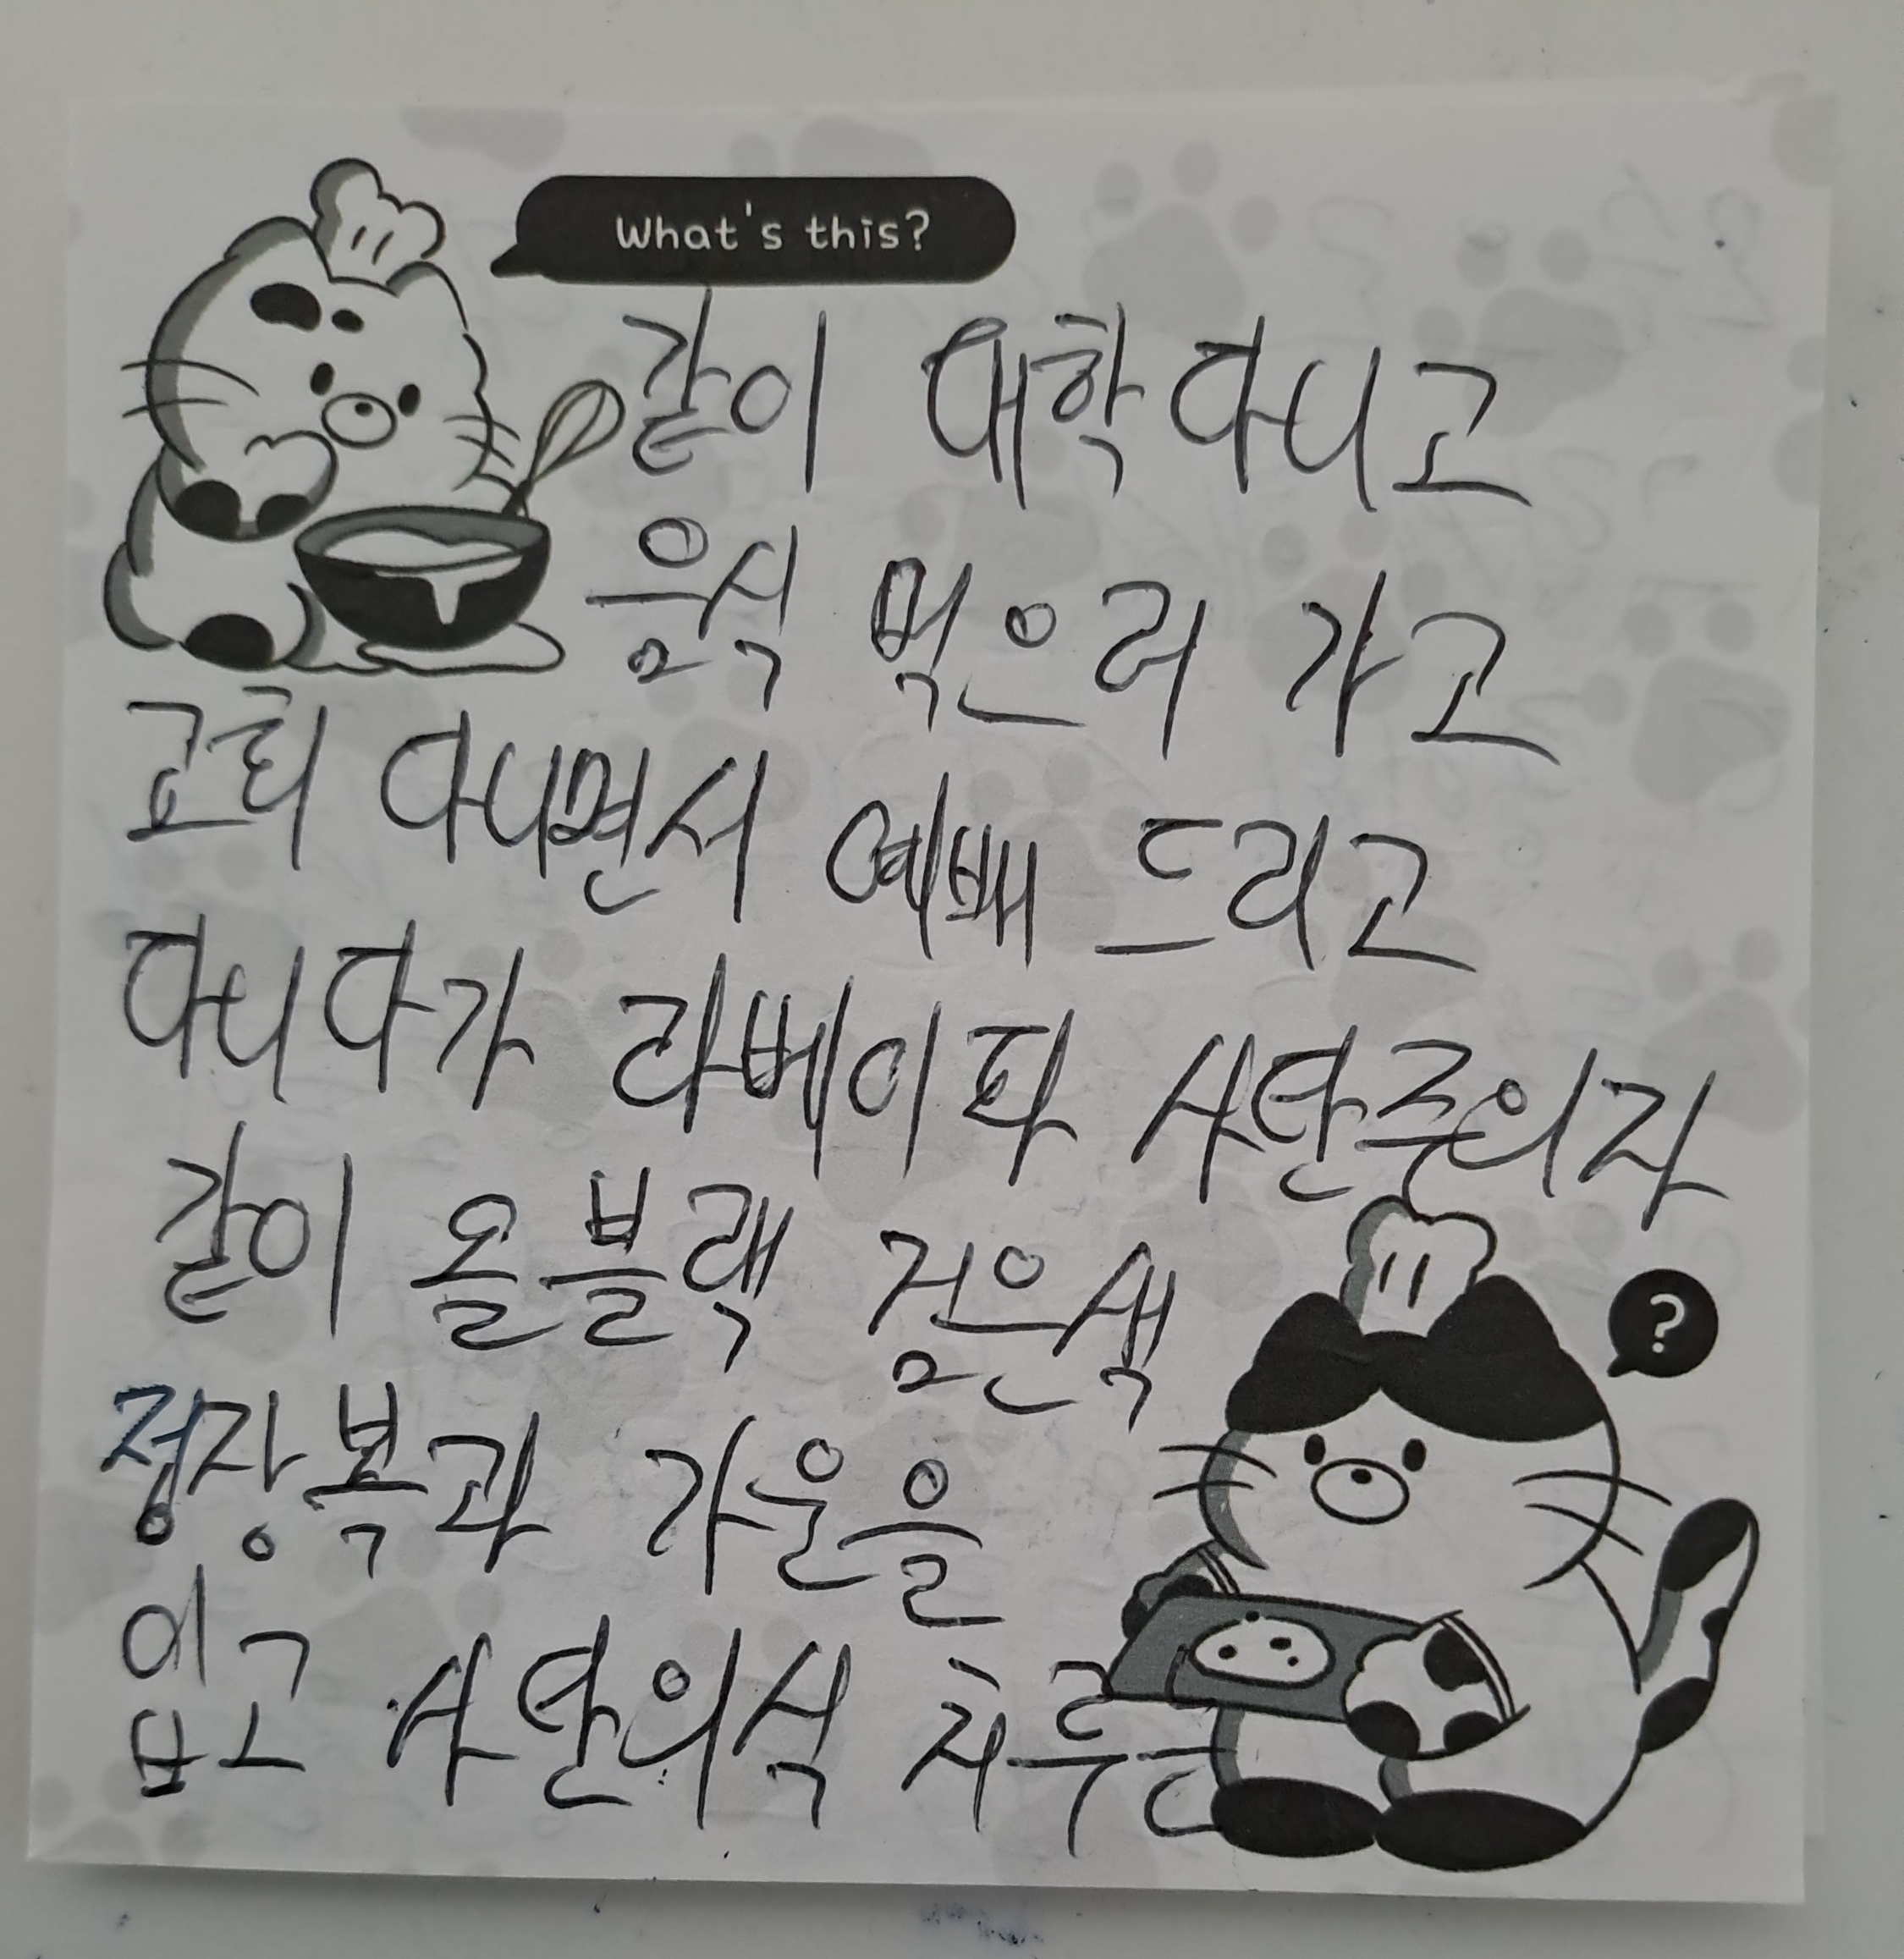 What's this?
같이 대학 다니고
음식 먹으러 가고
교회 다니면서 예배 드리고
다니다가 라베이파 사탄주의자
같이 올블랙 검은색
?
정장복과 가운을
입고 사탄의식 치루는